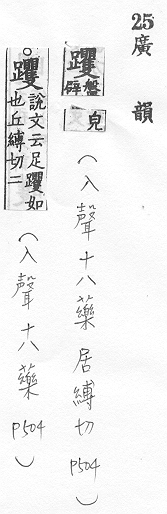 25廣韻
躩盤辟皃（入聲十八藥居縛切P504）
。躩說文云足躩如也丘縛切二（入聲十八藥P504）